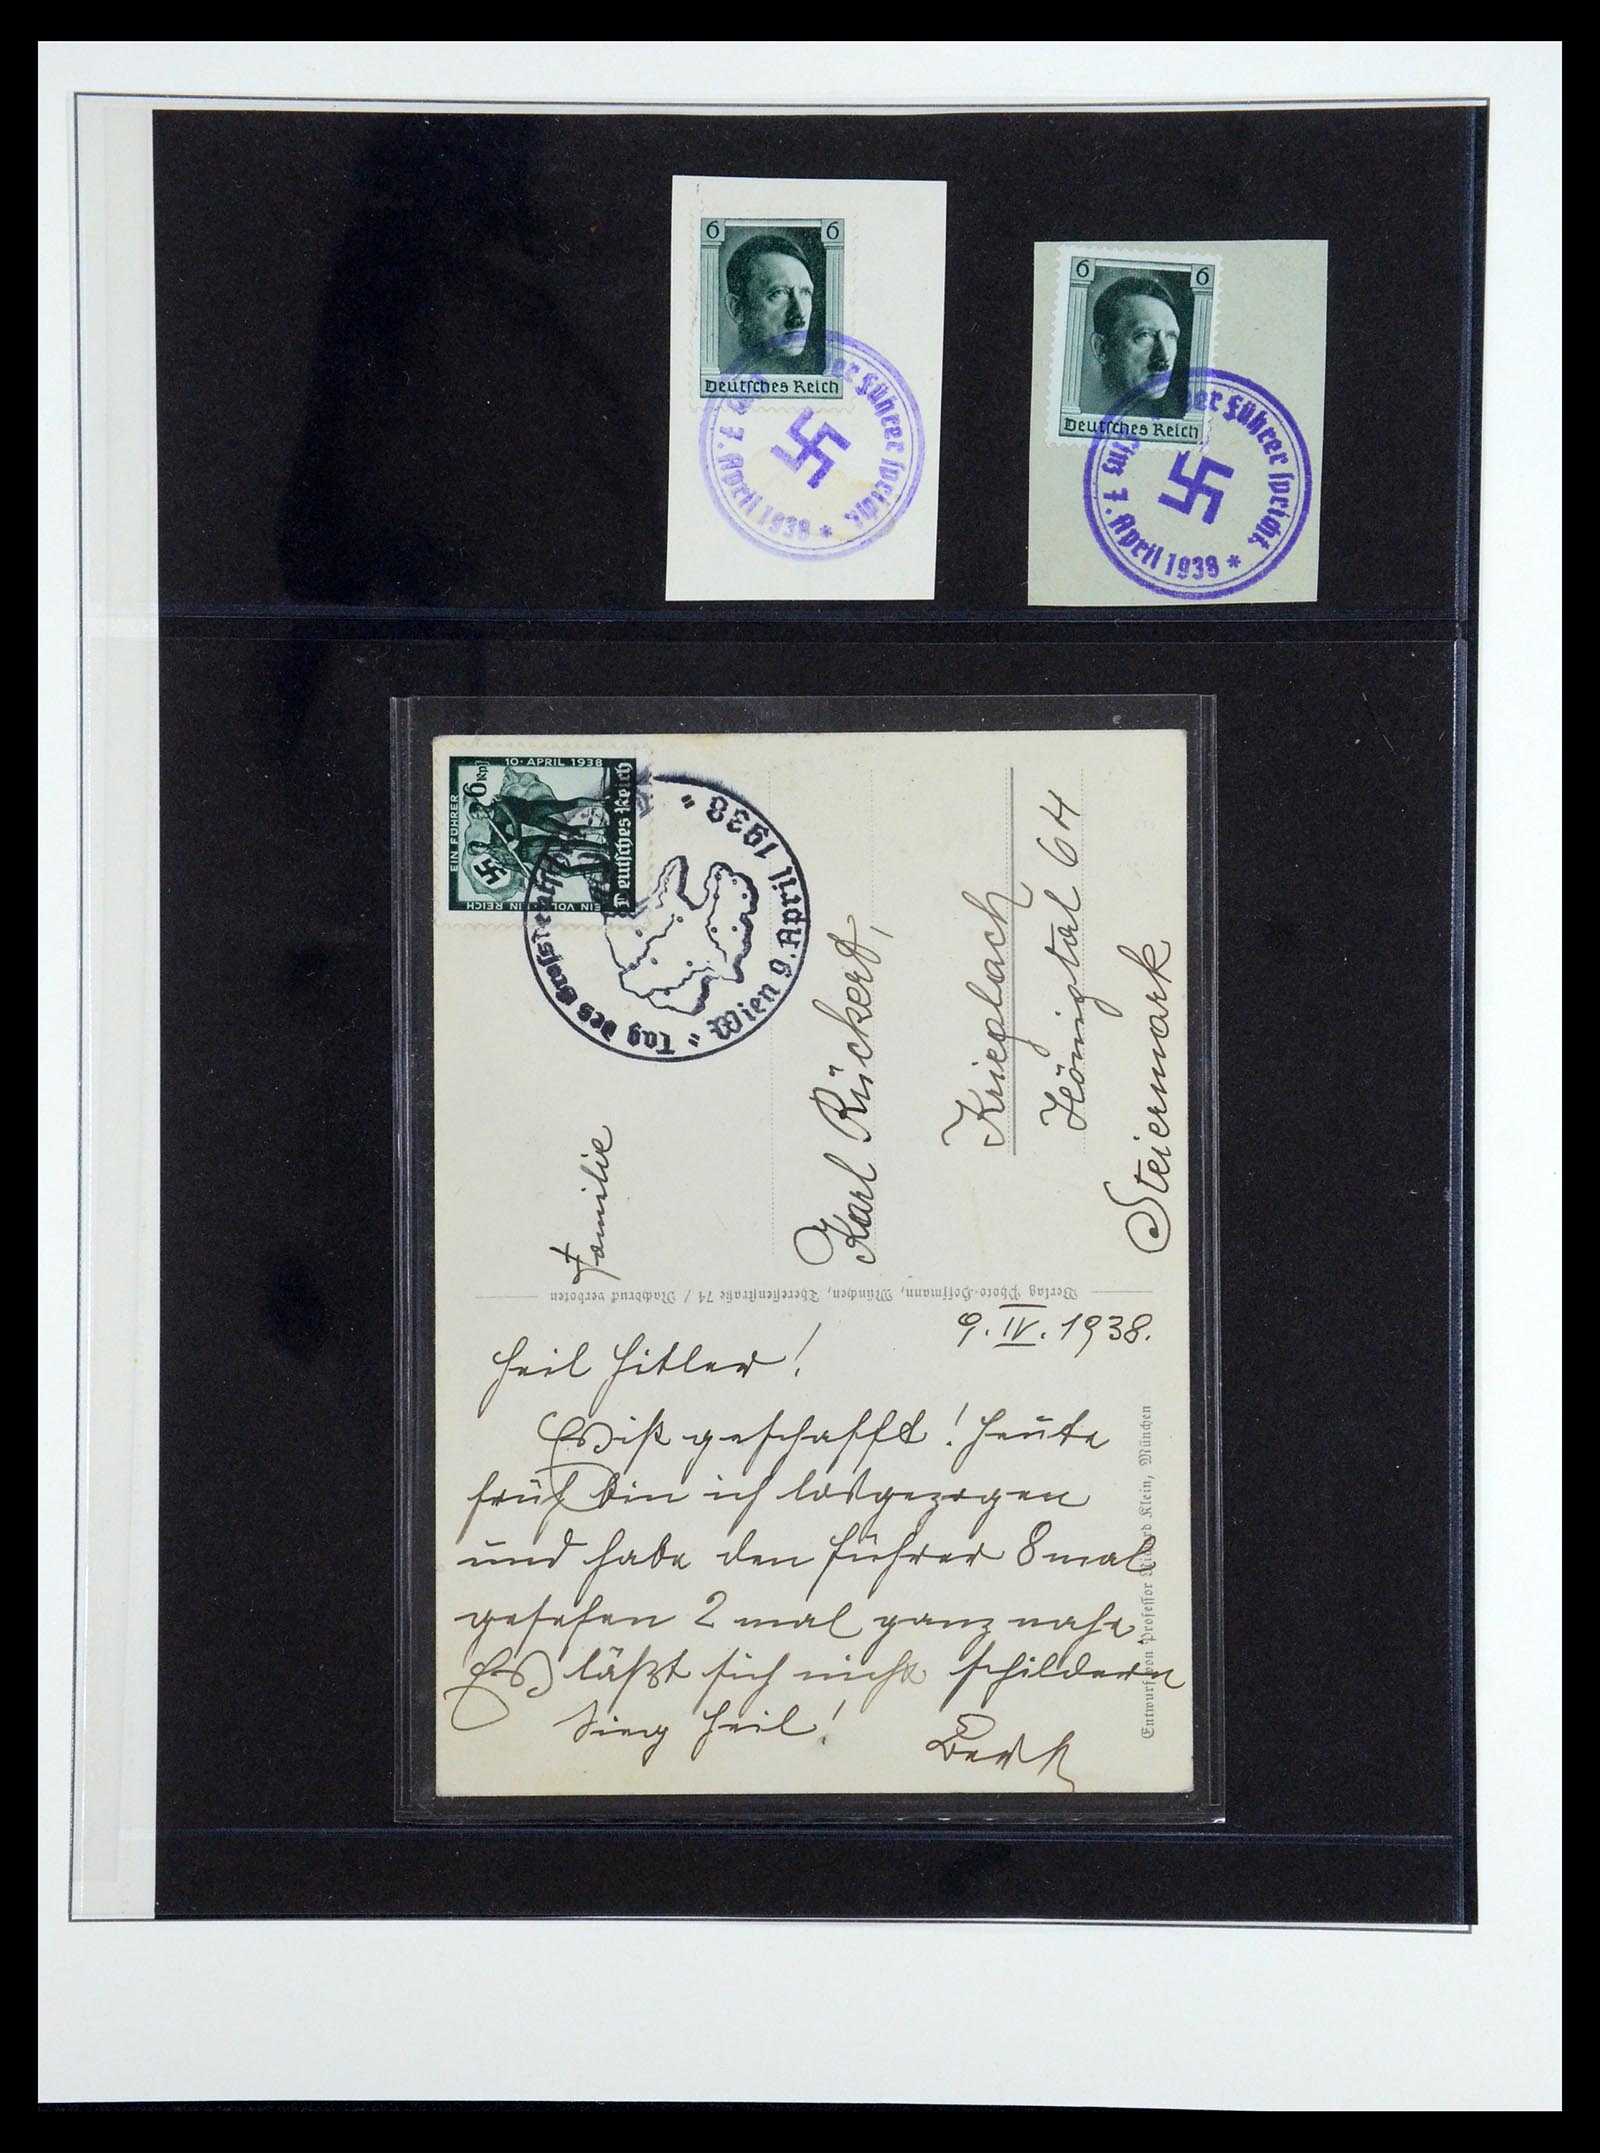 6 6
Deutsches Reich
der Führer spricht.
7. April 1938 *
6 6
Deutsches Reich
der Führer spricht.
Linz 7. April 1938 *
10. APRIL 1938
EIN VOLK EIN REICH
EIN FÜHRER
6 Rpf
Deutsches Reich
" Tag des
Wien 9. April 1938 "
Familie
Karl Rückert,
Krieglach
Hönigtal 64
Steiermark
Verlag Photo-Hoffmann, München, Theresienstraße 74 / Nachdruck verboten
9. IV. 1938.
Heil Hitler!
Es ist geschafft! Heute
früh bin ich losgezogen
und habe den Führer 8 mal
gesehen 2 mal ganz nahe.
Es läßt sich nicht schildern
Sieg Heil!
Entwurf von Professor Richard Klein, München